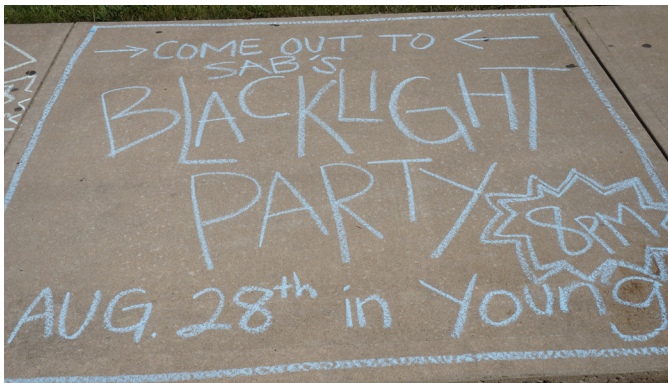 COME OUT TO
SAB'S
BLACKLIGHT
PARTY
8PM
AUG. 28th in Young